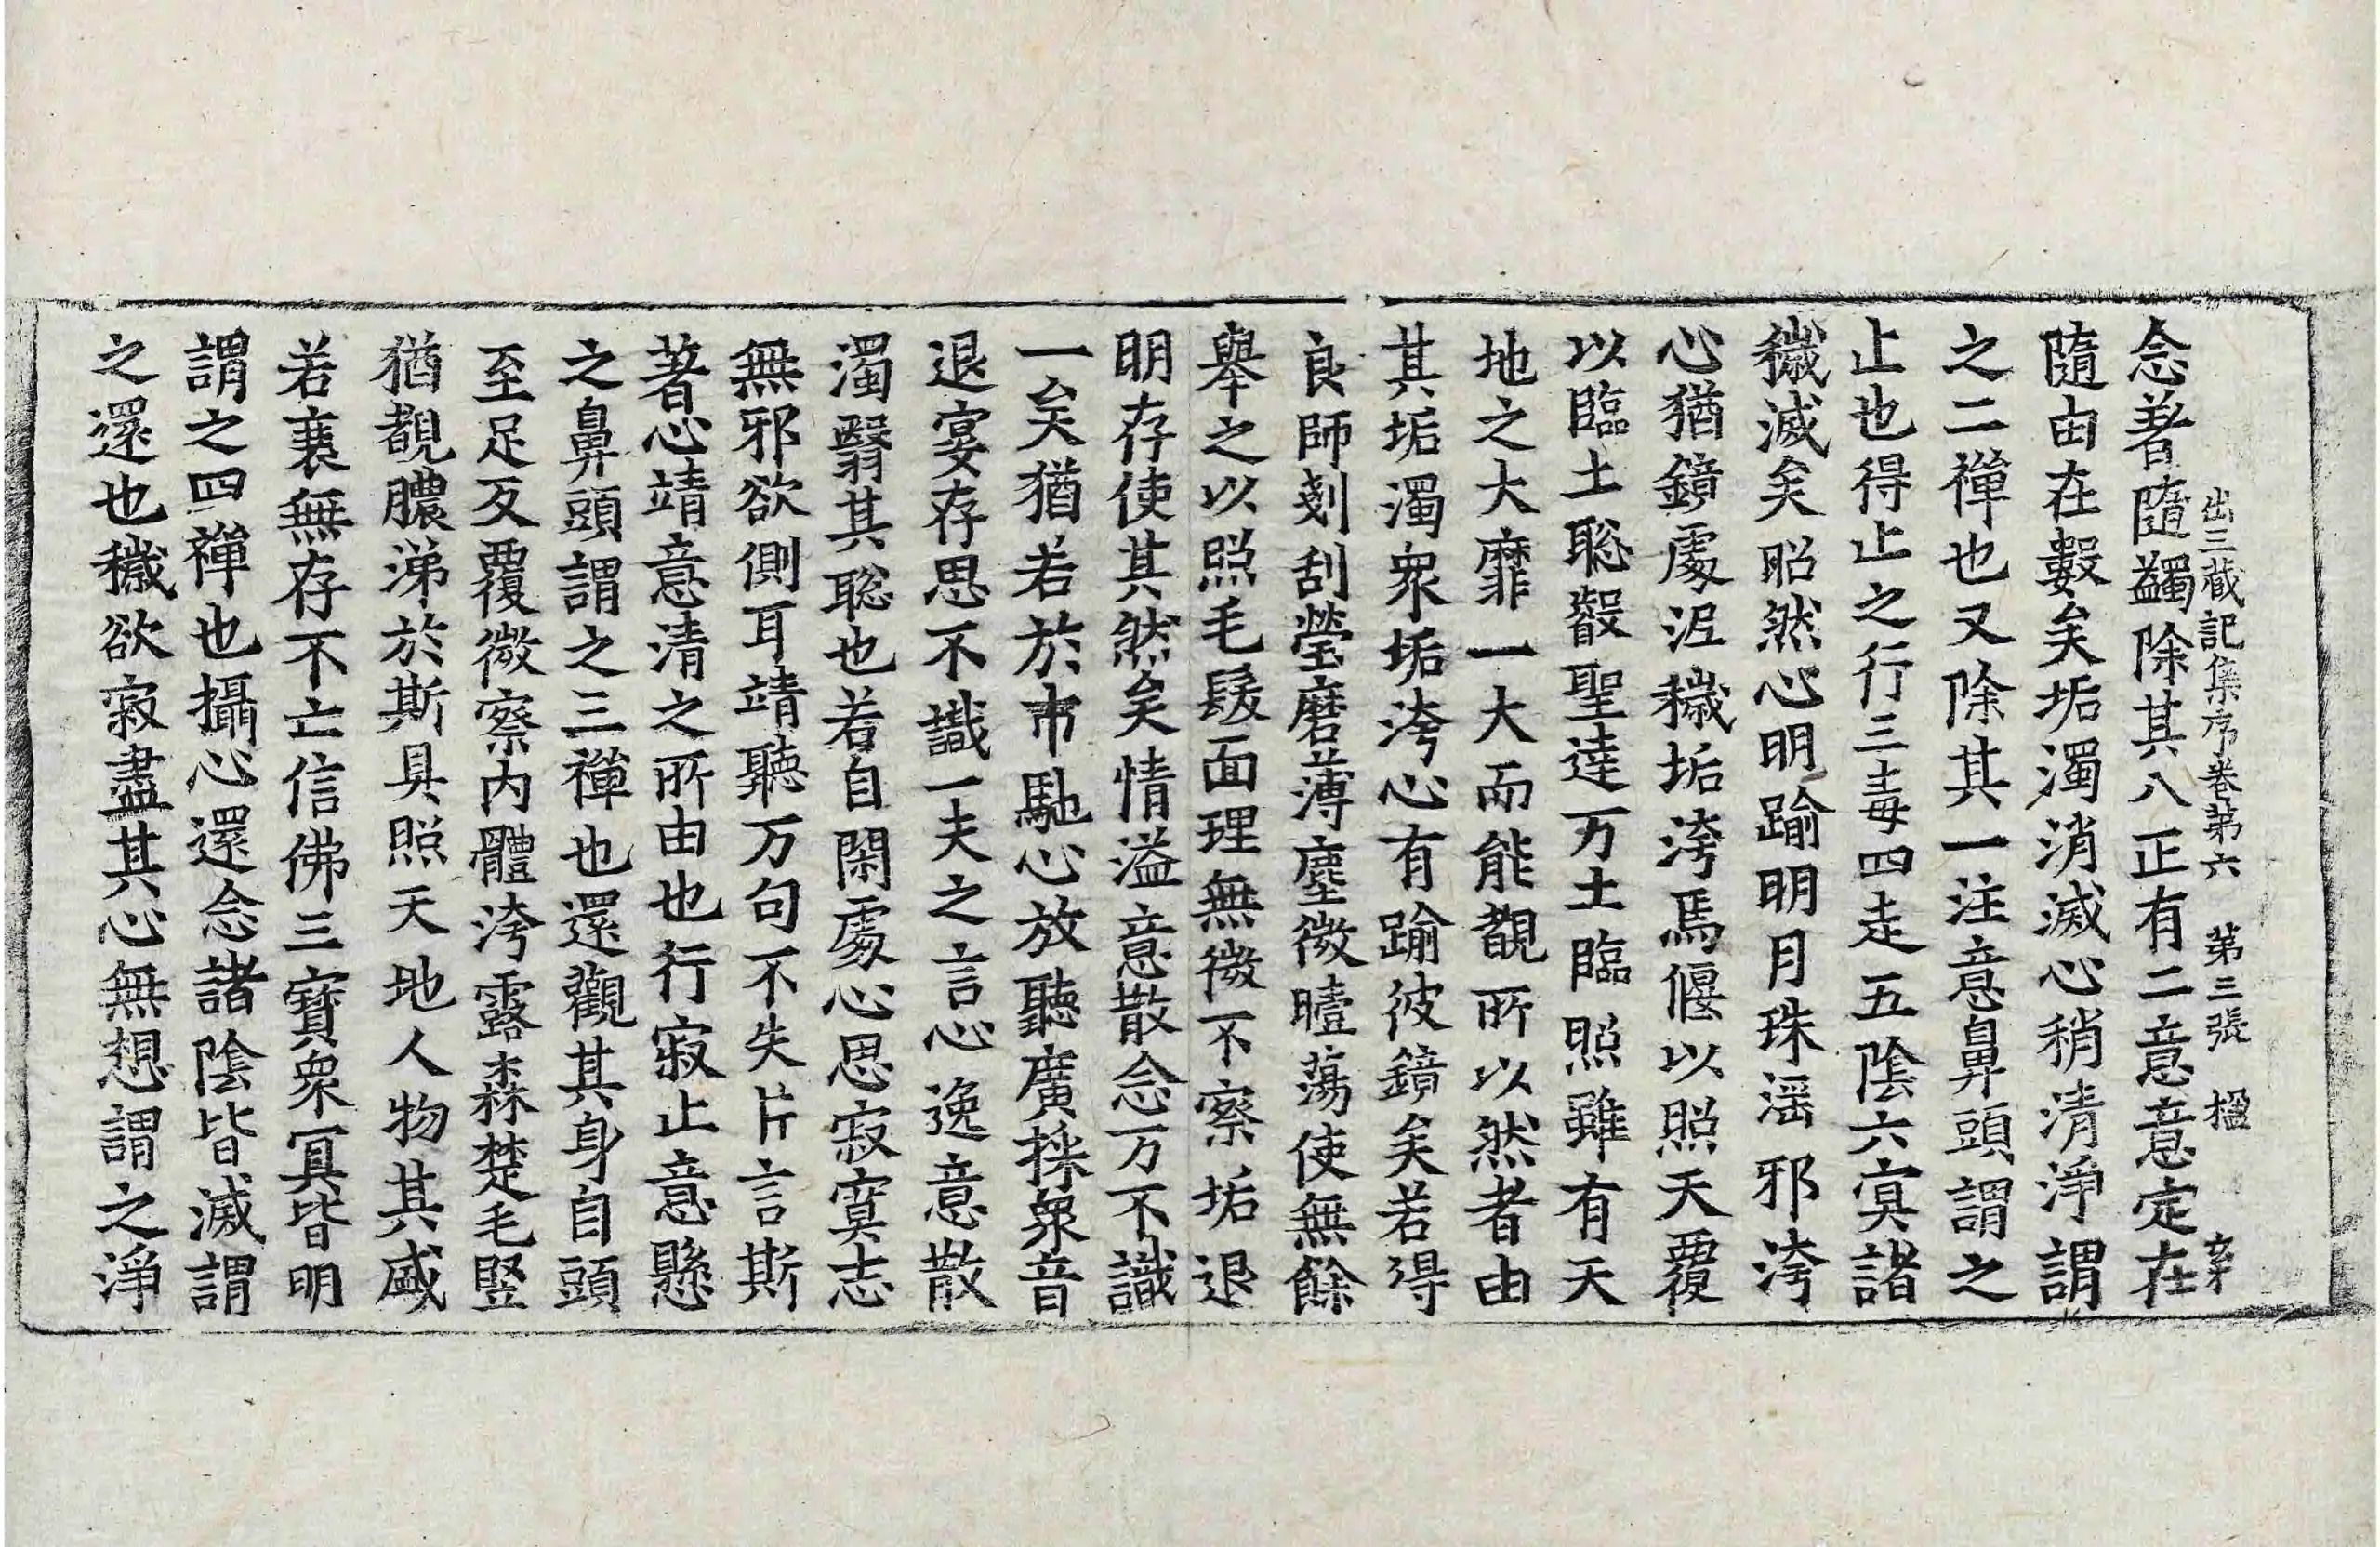 出三藏記集序卷第六 第三張 楹
念著隨蠲除其八正有二意意定在
隨由在數矣垢濁消滅心稍清淨謂
之二禪也又除其一注意鼻頭謂之
止也得止之行三毒四走五陰六㝠諸
穢滅矣昭然心明踰明月珠滛邪洿
心猶鏡處泥穢垢洿焉偃以照天覆
以臨土聡叡聖達万土臨照雖有天
地之大靡一大而能覩所以然者由
其垢濁衆垢洿心有踰彼鏡矣若得
良師剗刮瑩磨薄塵微曀蕩使無餘
舉之以照毛髮面理無微不察垢退
明存使其然矣情溢意散念万不識
一矣猶若於市馳心放聽廣採衆音
退宴存思不識一夫之言心逸意散
濁翳其聡也若自閑處心思寂寞志
無邪欲側耳靖聽万句不失片言斯
著心靖意清之所由也行寂止意懸
之鼻頭謂之三禪也還觀其身自頭
至足反覆微察内體洿露森楚毛竪
猶覩膿涕於斯具照天地人物其盛
若衰無存不亡信佛三寶衆㝠皆明
謂之四禪也攝心還念諸陰皆滅謂
之還也穢欲寂盡其心無想謂之淨